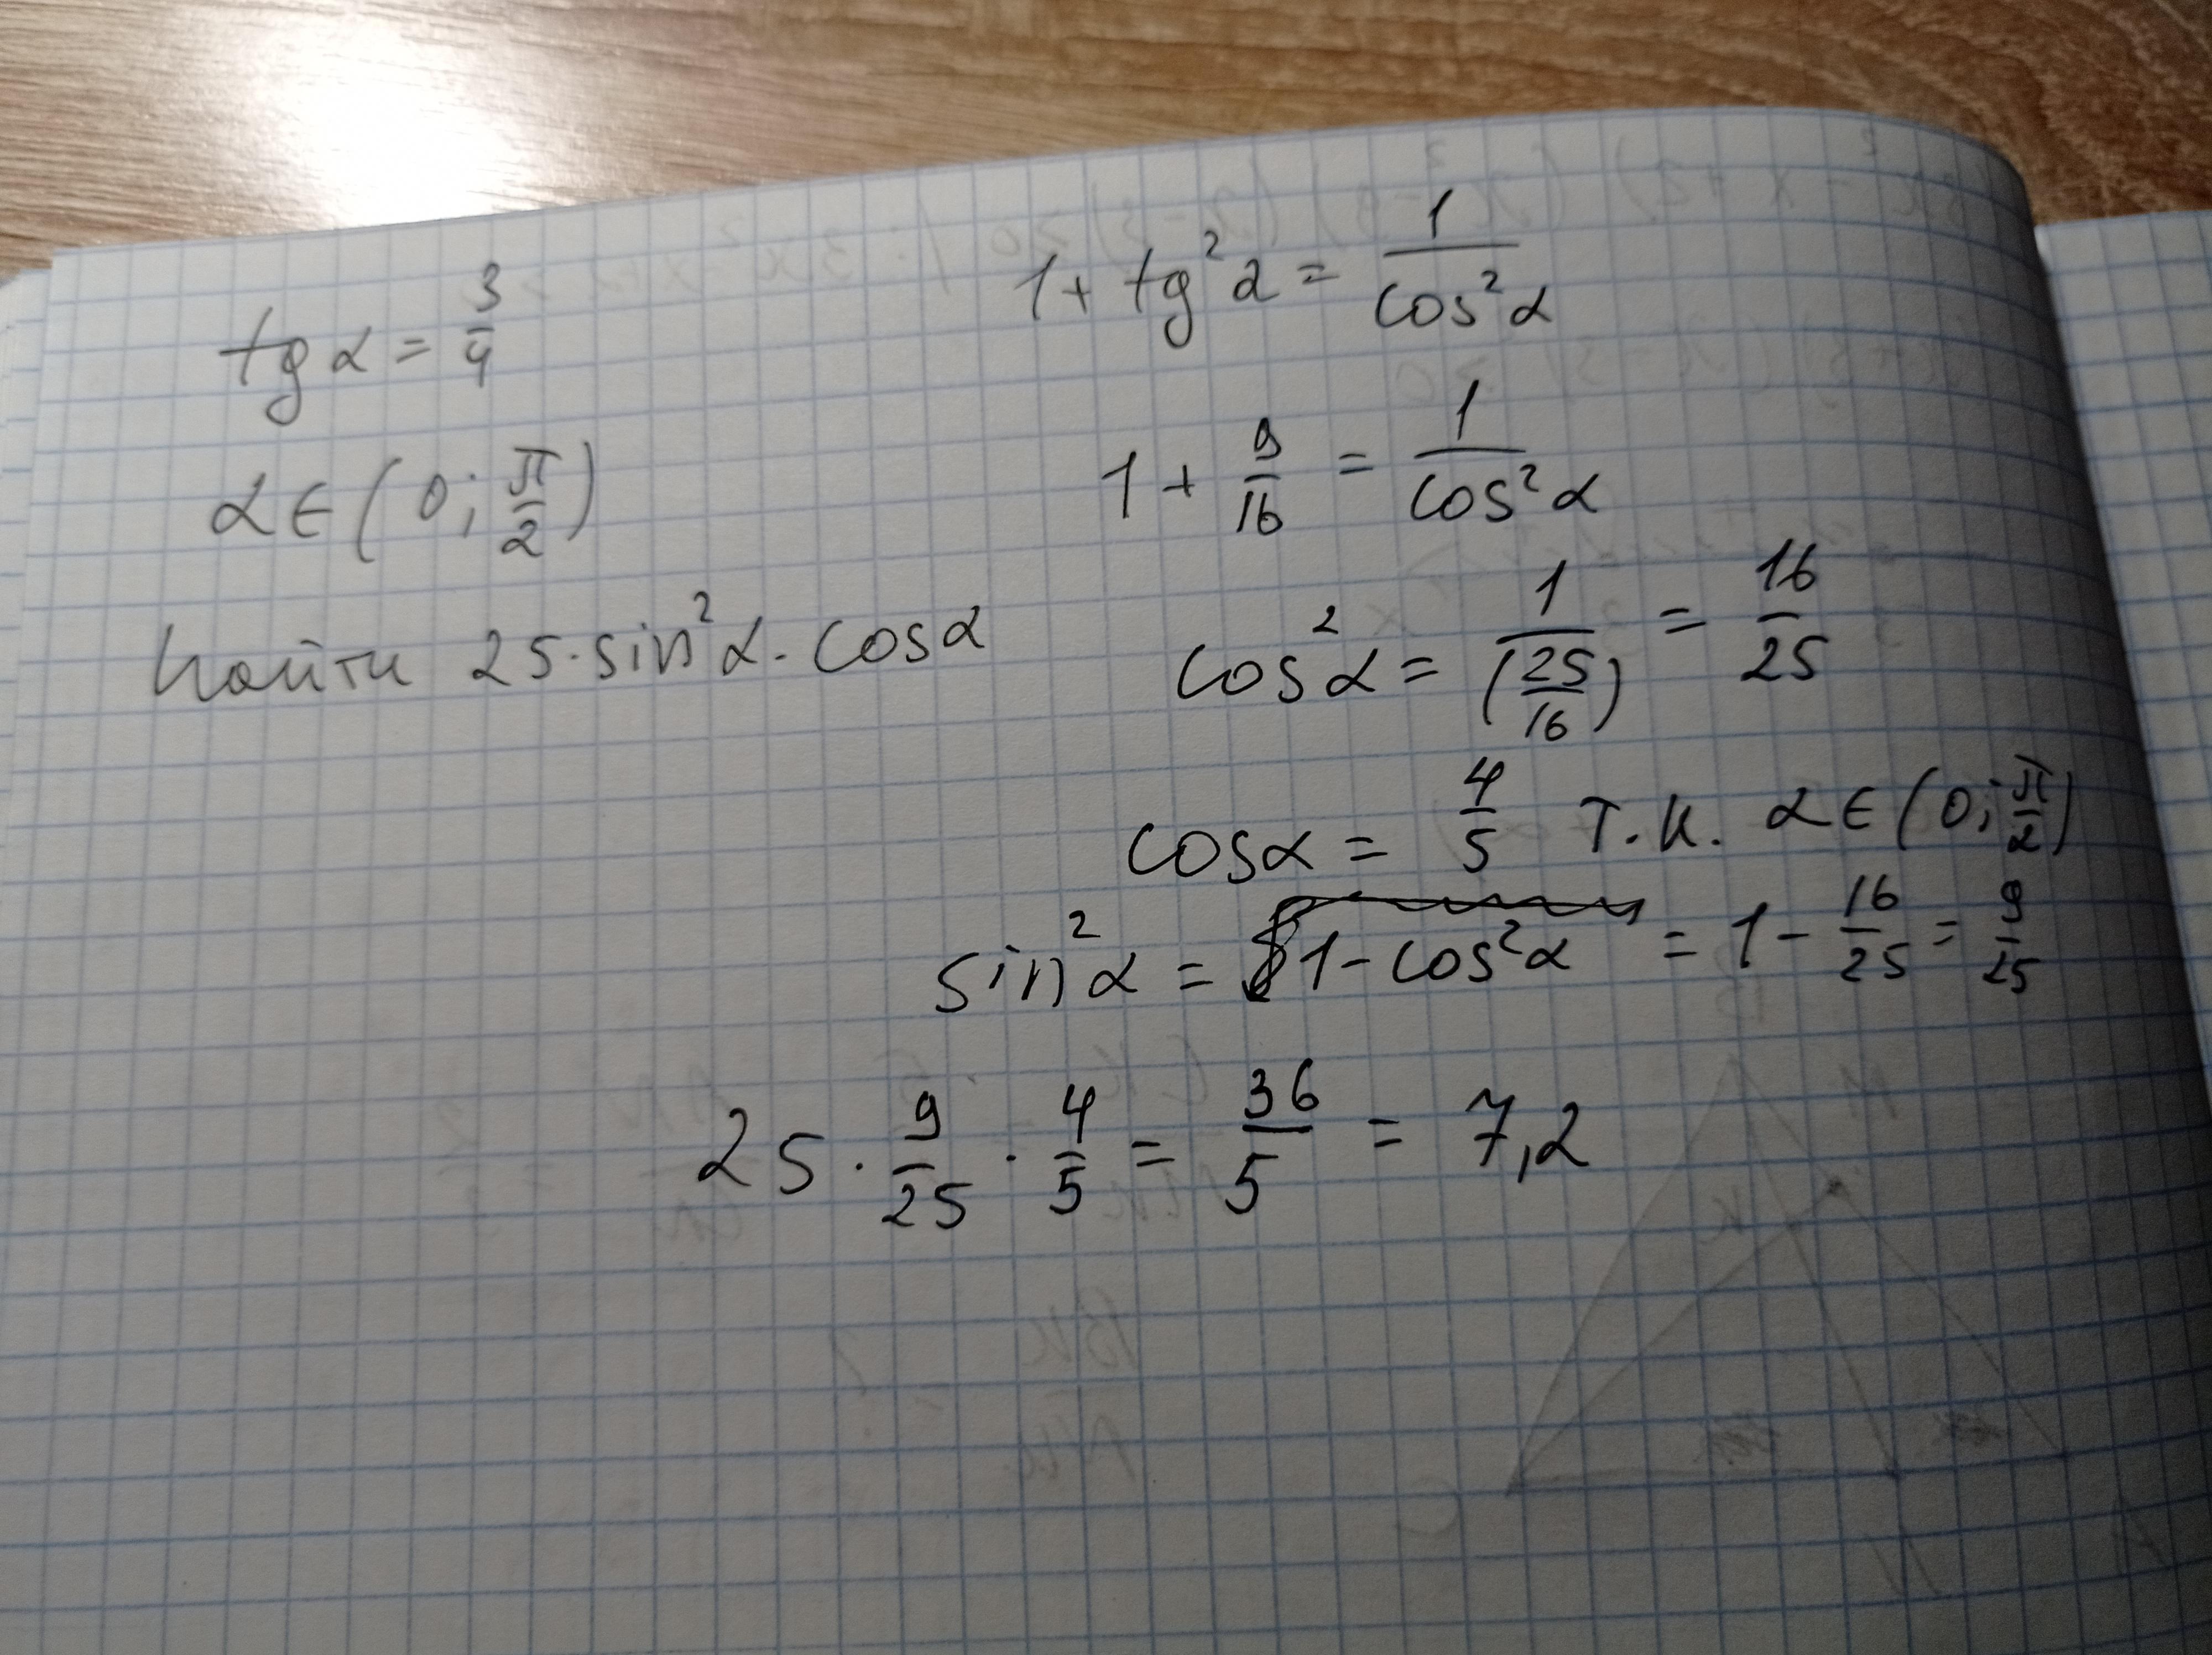 tg α = 3/4
α ∈ (0; π/2)
найти 25·sin²α·cosα
1 + tg²α = 1/cos²α
1 + 9/16 = 1/cos²α
cos²α = 1/(25/16) = 16/25
cosα = 4/5 т.к. α ∈ (0; π/2)
sin²α = 1 - cos²α = 1 - 16/25 = 9/25
25 · 9/25 · 4/5 = 36/5 = 7,2